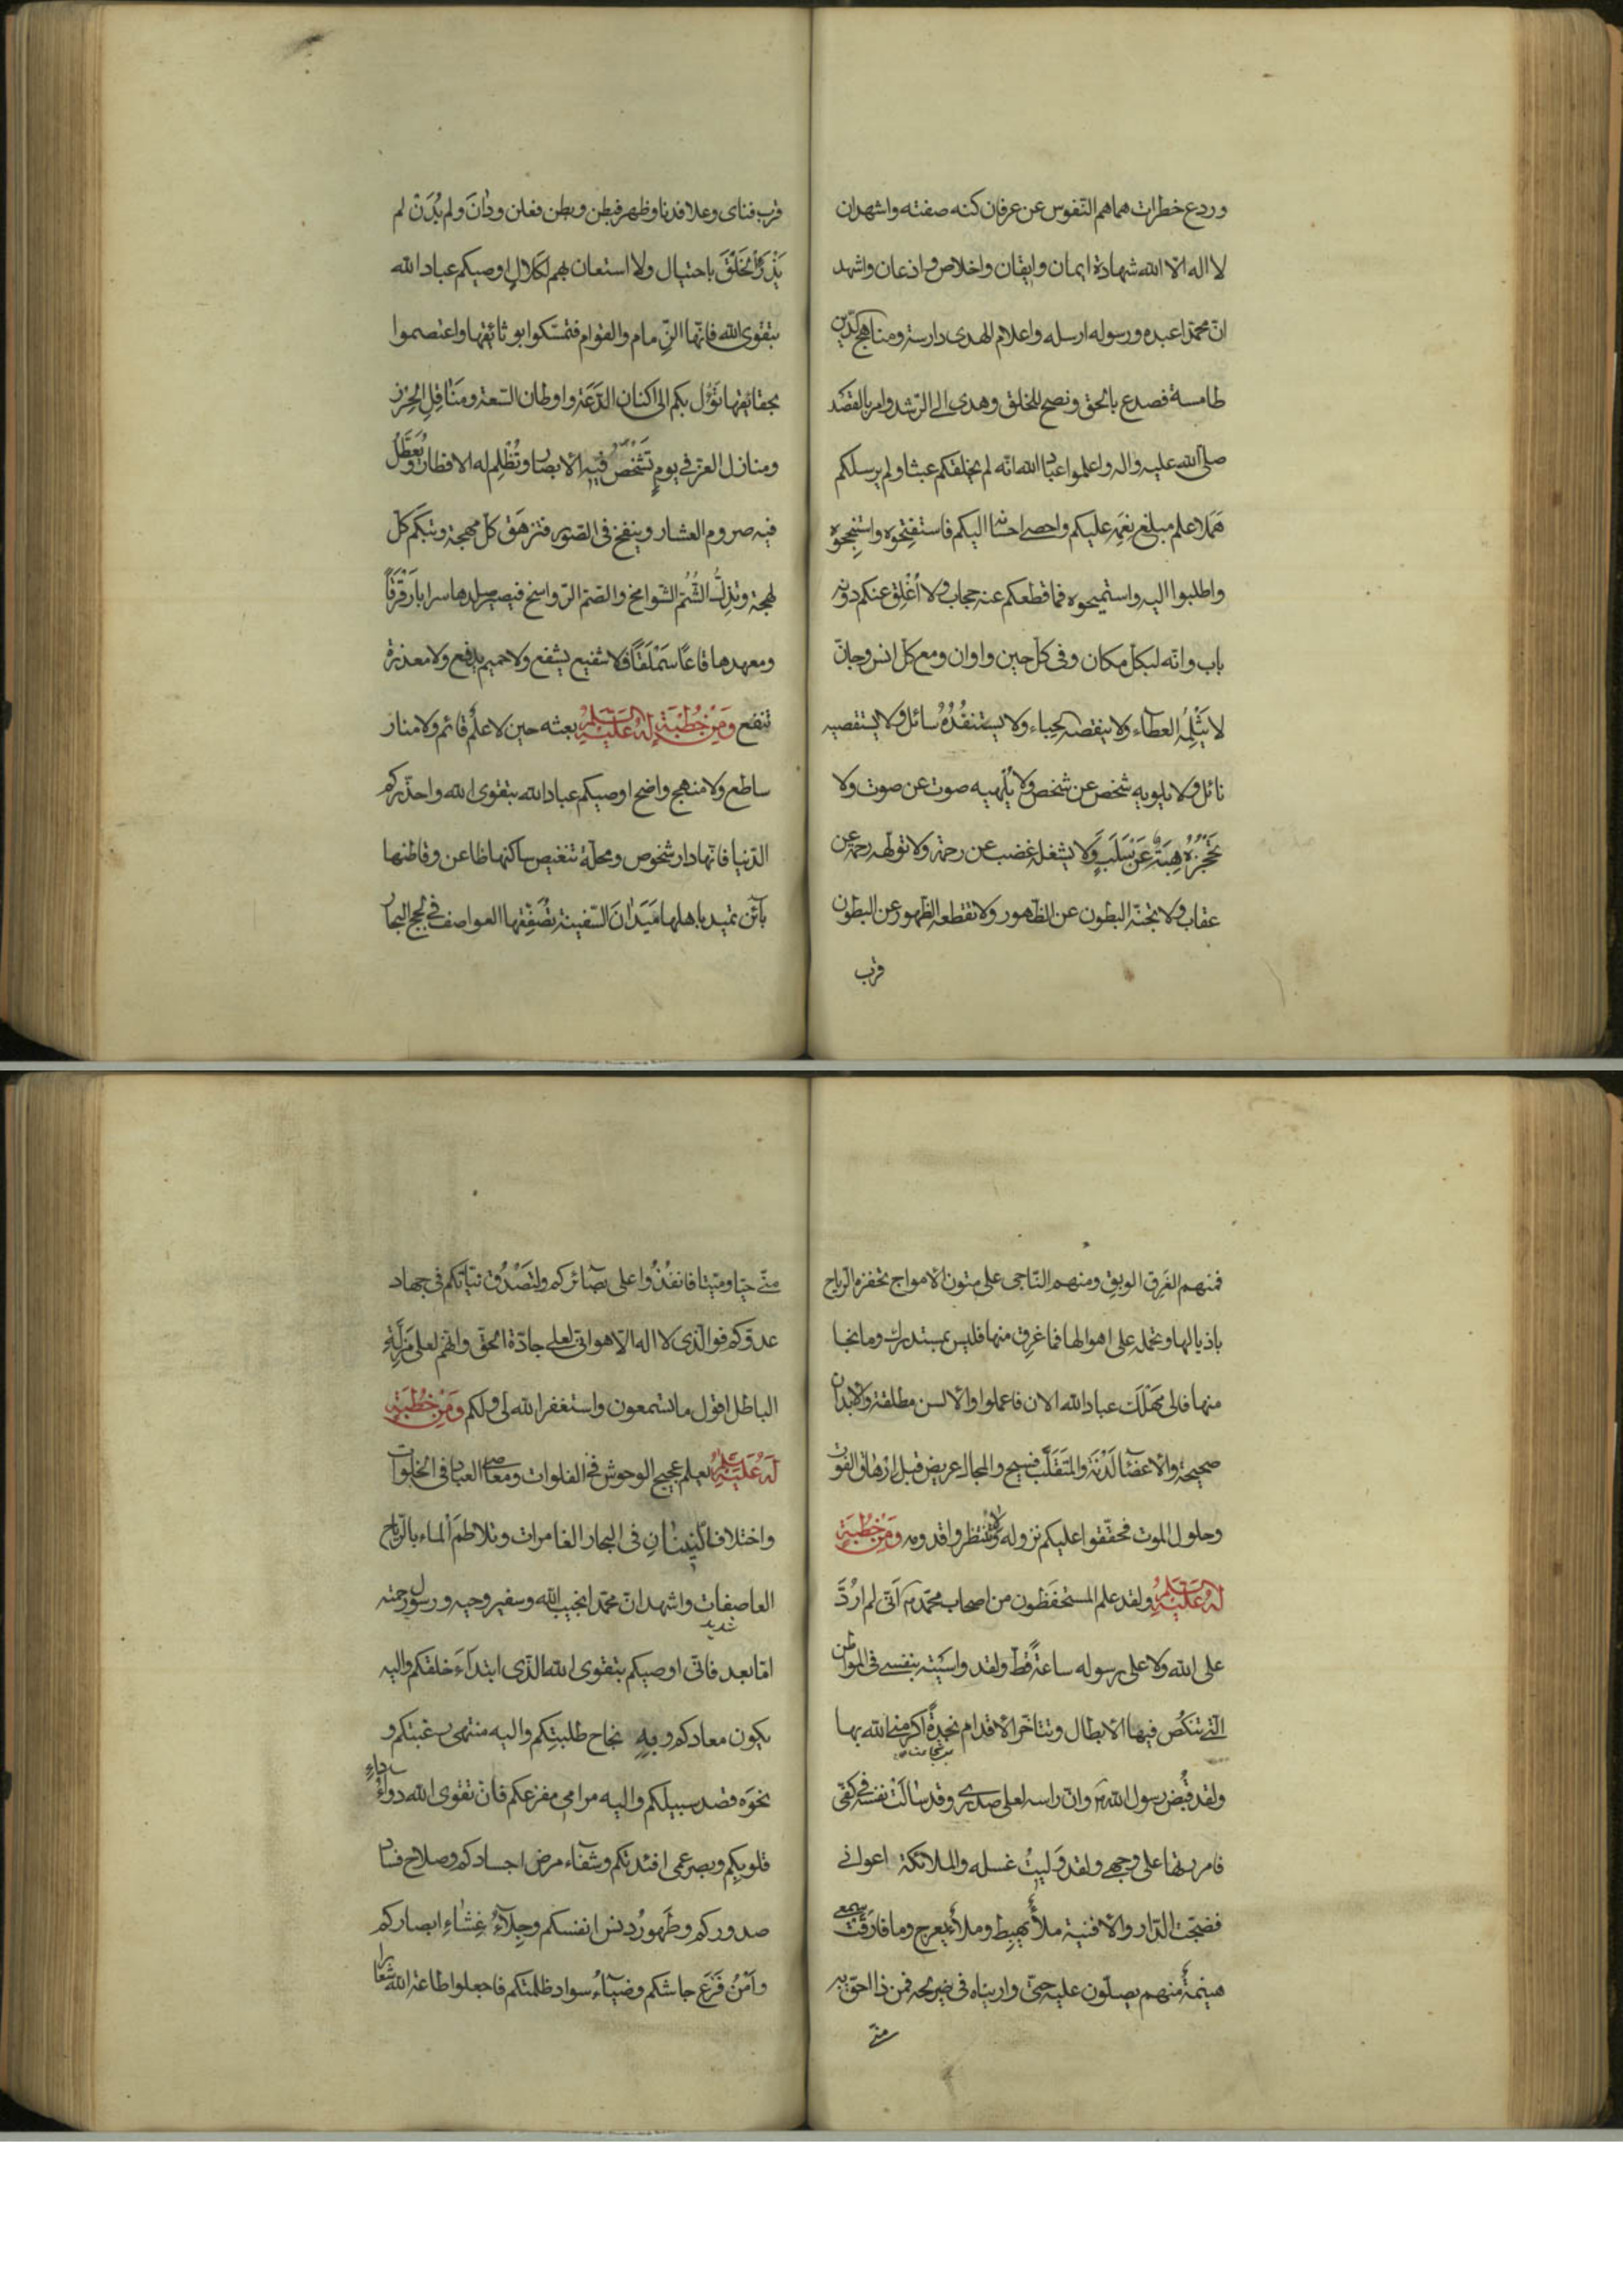 وردع خطرات هماهم النّفوس عن عرفان كنه صفته واشهد ان
لا اله الا الله شهادة ايمان وايقان واخلاص واذعان واشهد
انّ محمّدا عبده ورسوله ارسله واعلام الهدى دارسة ومناهج الدّين
طامسة فصدع بالحق ونصح للخلق وهدى الى الرّشد وامر بالقصد
صلى الله عليه واله واعلموا عباد الله انّه لم يخلقكم عبثا ولم يرسلكم
هَمَلا علم مبلغ نِعَمِه عليكم واحصى احسانه اليكم فاستفتِحوه واستنجِحوه
واطلبوا اليه واستميحوه فما قطعكم عنه حجاب ولا اُغْلِق عنكم دونه
باب وانّه لبكل مكان وفى كلّ حين واوان ومع كلّ انس وجانّ
لا يَثْلِمُه العطاء ولا ينقصه الحِباء ولا يستنفِدُهُ سائل ولا يستقصيه
نائل ولا يلويه شخص عن شخص ولا يُلْهيه صوت عن صوت ولا
تَحْجُزُهُ هِبَةٌ عَنْ سَلَبٍ وَلا يشغله غضب عن رحمة ولا تولهه رحمة عن
عقاب ولا تجنّه البطون عن الظهور ولا تقطعه الظهور عن البطون
قرب
قرب فناى وعلا فدنا وظهر فبطن وبطن فعلن ودان ولم يُدَن لم
يَذْرَء الخَلْقَ باحتيال ولا استعان بهم لكلالٍ اوصيكم عباد الله
بتقوى الله فانّها الزّمام والقوام فتمسّكوا بوثائقها واعتصموا
بحقائقها تؤُل بكم الى اكنان الدَّعَة واوطان السّعة ومَعَاقِلِ الحِرْز
ومنازل العز فى يومٍ تَشْخَصُ فيه الابصار وتُظْلِم له الاقطار وَتُعَطَّلُ
فيه صروم العشار وينفخ فى الصّور فتزهَقُ كلّ مهجة وتبكم كلّ
لهجة وتَذِلُّ الشُّمّ الشّوامخ والصّمّ الرّواسخ فيصير صلدها سرابا رَقْرَقاً
ومعهدها قاعًا سَمْلَقًا فلا شفيع يشفع ولا حميم يدفع ولا معذرة
تنفع وَمِنْ خُطْبَةٍ لَهُ عَلَيْهِ السَّلام بعثه حين لا علم قائم ولا منار
ساطع ولا منهج واضح اوصيكم عباد الله بتقوى الله واحذّركم
الدّنيا فانّها دار شخوص ومحلّة تنغيص ساكنها ظاعن وقاطنها
بآئن تميد باهلها مَيَدَانَ السّفينة تُصَفِّقُها العواصف فى لجج البحار
فمنهم الغَرِق الوبِق ومنهم النّاجى على متون الامواج تحفزه الرّياح
باذيالها وتحمله على اهوالها فما غرِق منها فليس بمستدرك وما نجا
منها فالى مَهْلَك عباد الله الان فاعملوا والالسن مطلقة والابدان
صحيحة والاعضآ لَدْنَة والمتَقَلَّب فسيح والمجال عريض قبل ارهاق الفوت
وحلول الموت فحقّقوا عليكم نزوله ولا تنتظروا قدومه وَمِنْ خُطْبَةٍ
لَهُ عَلَيْهِ السَّلام ولقد علم المستحفَظون من اصحاب محمّد ص انّى لم ارُدَّ
على الله ولا على رسوله ساعةً قطّ ولقد واسَيْته بنفسى فى المواطن
الّتى تنكُص فيها الابطال وتتاخّر الاقدام نجدةً اكرمنى الله بها
ولقد قُبِض رسول الله ص وانّ راسه لعلى صدرى وقد سالَتْ نفسه فى كفّى
فامررتها على وجهى ولقد وَليتُ غسله والملائكة اعوانى
فضجّت الدّار والافنية ملأٌ يهبِط وملأٌ يعرج وما فارَقَت سمعى
هينمةٌ منهم يصلّون عليه حتّى واريناه فى ضريحه فمن ذا احقّ به
منّى
منّى حيّا وميّتا فانفُذُوا على بصآئركم ولتَصْدُق نيّاتكم فى جهاد
عدوّكم فوالّذى لا اله الا هو انّى لعلى جادّة الحقّ وانهم لعلى مَزَلَّةِ
الباطل اقول ما تسمعون واستغفر الله لى ولكم وَمِنْ خُطْبَةٍ
لَهُ عَلَيْهِ السَّلام يعلم عجيج الوحوش فى الفلوات ومعاصى العباد فى الخلوات
واختلاف النّينانِ فى البحار الغامرات وتلاطمَ الماء بالرّياح
العاصفات واشهد انّ محمّدا نجيب الله وسفير وحيه ورسول رحمته
شديد
امّا بعد فانّى اوصيكم بتقوى الله الذّى ابتدآءَ خلقكم واليه
يكون معادكم وبِهِ نجاح طلبتِكم واليه منتهى رغبتكم و
نحوَه قصد سبيلكم واليه مرامى مفزعكم فانّ تقوى الله دواءُ داءِ
قلوبِكم وبصر عمى افئدتكم وشفآء مرض اجسادكم وصلاح فساد
صدوركم وطَهورُ دنس انفسكم وجِلآءُ غِشَاءِ ابصاركم
وامْنُ فَزَعِ جاشكم وضيآءُ سواد ظلمتكم فاجعلوا طاعة الله شعارا